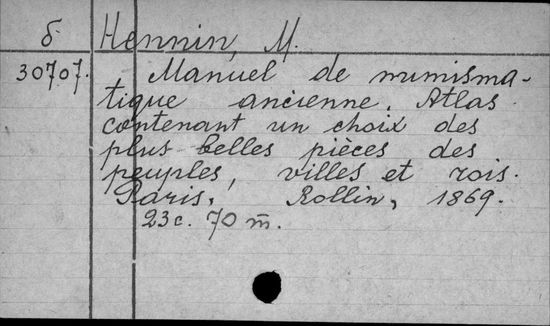 б Hennin, M.
30707. Manuel de numisma-
tique ancienne. Atlas
contenant un choix des
plus belles pièces des
peuples, villes et rois.
Paris, Rollin, 1869.
23c. 70 m̄.